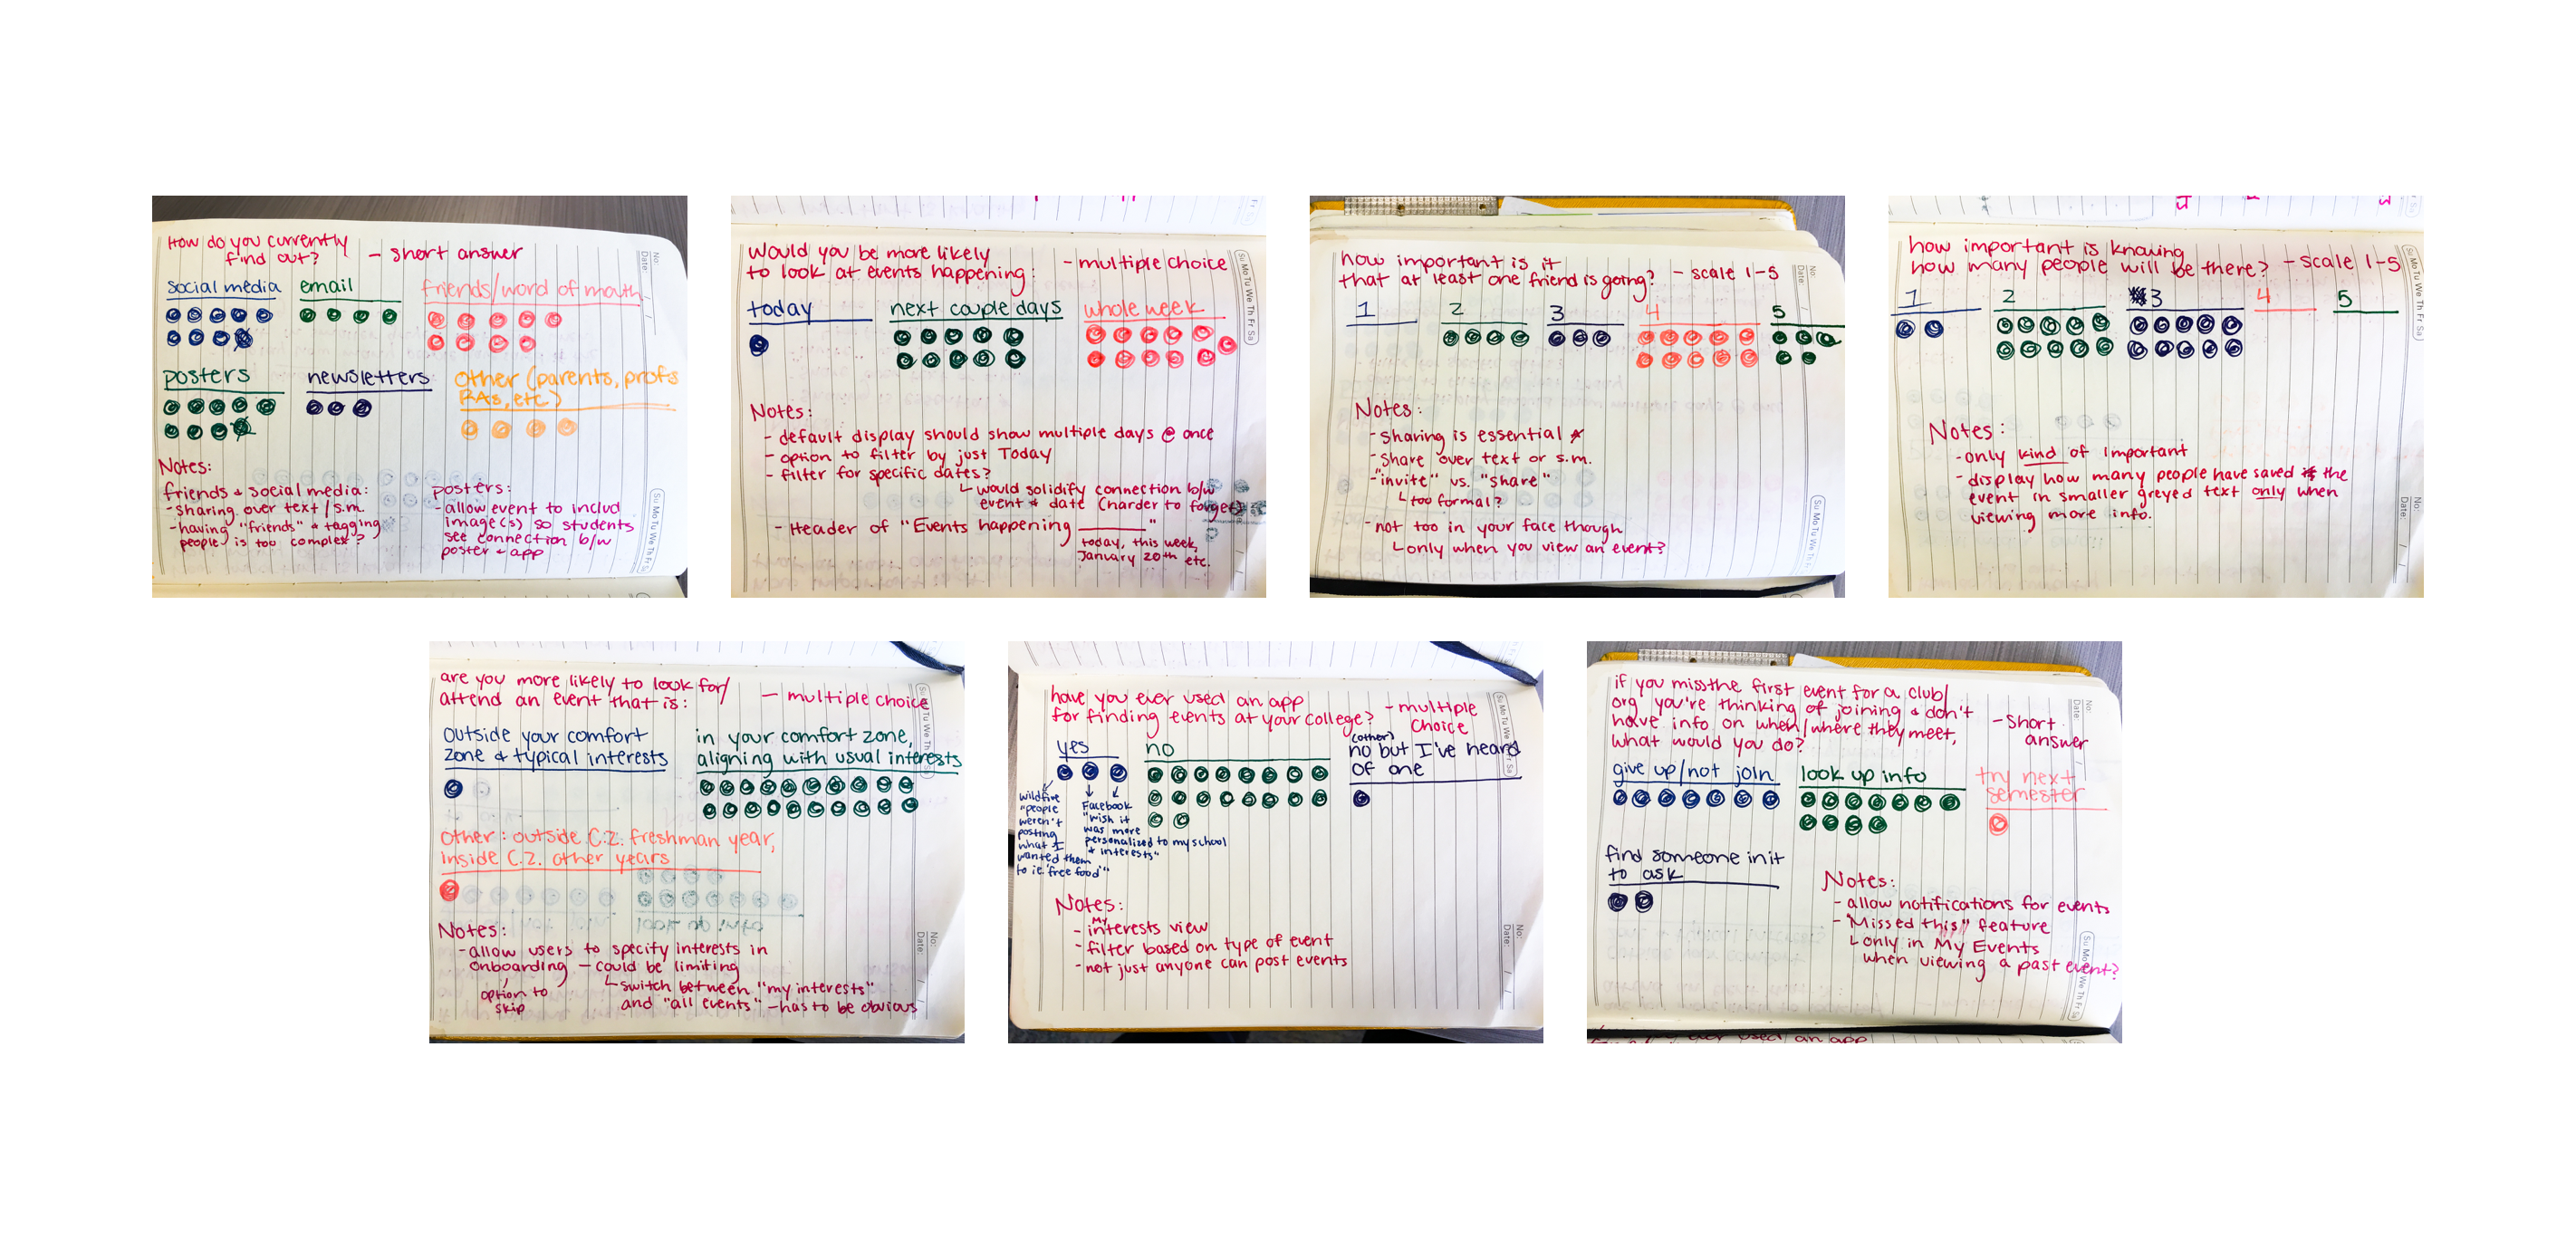 How do you currently
find out?
- short answer
social media
email
friends/word of mouth
posters
newsletters
other (parents, profs
RAs, etc)
Notes:
friends & social media:
- sharing over text/s.m.
- having "friends" & tagging
people is too complex?
posters:
- allow event to includ
image(s) so students
see connection b/w
poster & app
No:
Date:
Su Mo Tu We Th Fr Sa
would you be more likely
to look at events happening:
- multiple choice
today
next couple days
whole week
Notes:
- default display should show multiple days @ once
- option to filter by just Today
- filter for specific dates?
would solidify connection b/w
event & date (harder to forget)
- Header of "Events happening ______"
today, this week,
January 20th etc.
Su Mo Tu We Th Fr Sa
how important is it
that at least one friend is going?
- scale 1-5
1
2
3
4
5
Notes:
- sharing is essential
- share over text or s.m.
- "invite" vs. "share"
too formal?
- not too in your face though
only when you view an event?
No:
Date:
Su Mo Tu We Th Fr Sa
how important is knowing
how many people will be there?
- scale 1-5
1
2
3
4
5
Notes:
- only kind of important
- display how many people have saved the
event in smaller greyed text only when
viewing more info.
Su Mo Tu We Th Fr Sa
No:
Date:
are you more likely to look for/
attend an event that is:
- multiple choice
outside your comfort
zone & typical interests
in your comfort zone,
aligning with usual interests
other: outside C.Z. freshman year,
inside C.Z. other years
Notes:
- allow users to specify interests in
onboarding - could be limiting
option to
skip
switch between "my interests"
and "all events" - has to be obvious
Su Mo Tu We Th Fr Sa
No:
Date:
have you ever used an app
for finding events at your college?
- multiple
choice
yes
no
(other)
no but I've heard
of one
wildfire
"people
weren't
posting
what I
wanted them
to ie. 'free food'"
Facebook
"wish it
was more
personalized to my school
& interests"
Notes:
- My interests view
- filter based on type of event
- not just anyone can post events
Su Mo Tu We Th Fr Sa
No:
Date:
if you miss the first event for a club/
org you're thinking of joining & don't
have info on when/where they meet,
what would you do?
- short
answer
give up/not join
look up info
try next
semester
find someone in it
to ask
Notes:
- allow notifications for events
- "Missed this" feature
only in My Events
when viewing a past event?
No:
Date:
Su Mo Tu We Th Fr Sa